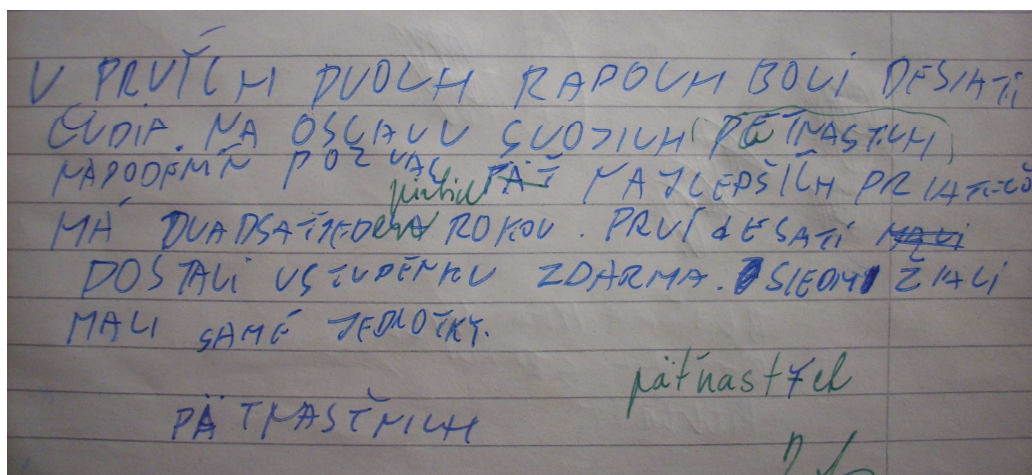 V PRVÍCH DVOCH RADOCH BOLI DESIATI
ĽUDIA. NA OSLAVU SVOJICH PÄTNASTICH
NARODENÍN POZVAL piatich PÄŤ NAJLEPŠÍCH PRIATEĽO
MÁ DVADSAŤJEDEN ROKOV. PRVÍ DESATI MALI
DOSTALI VSTUPENKU ZDARMA. SIEDMI ŽIACI
MALI SAMÉ JEDNOTKY.
pätnastych
PÄTNASTNICH